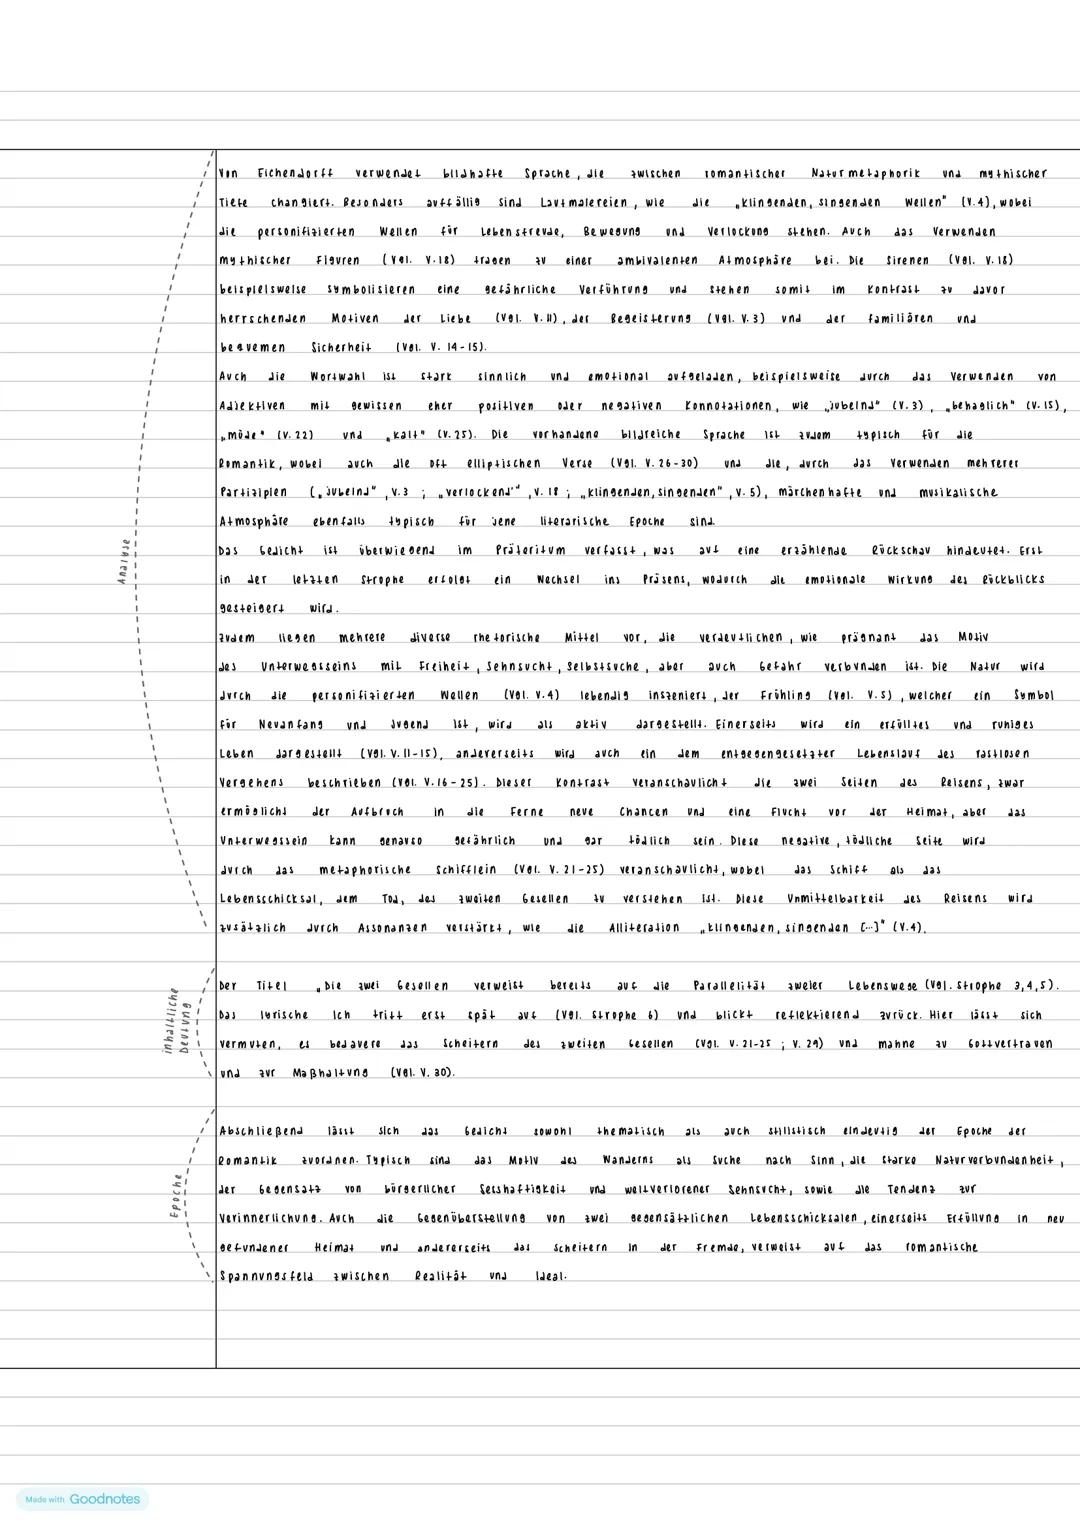 Von Eichendorff verwendet bildhafte Sprache, die zwischen romantischer Naturmetaphorik und mythischer
Tiefe changiert. Besonders auffällig sind Lautmalereien, wie die „klingenden, singenden Wellen" (V.4), wobei
die personifizierten Wellen für Lebensfreude, Bewegung und Verlockung stehen. Auch das Verwenden
mythischer Figuren (Vgl. V.18) tragen zu einer ambivalenten Atmosphäre bei. Die Sirenen (Vgl. V.18)
beispielsweise symbolisieren eine gefährliche Verführung und stehen somit im Kontrast zu davor
herrschenden Motiven der Liebe (Vgl. V.11), der Begeisterung (Vgl. V.3) und der familiären und
bequemen Sicherheit (Vgl. V. 14-15).
Auch die Wortwahl ist stark sinnlich und emotional aufgeladen, beispielsweise durch das Verwenden von
Adjektiven mit gewissen eher positiven oder negativen Konnotationen, wie „jubelnd" (V.3), „behaglich" (V.15),
„müde" (V.22) und „kalt" (V.25). Die vorhandene bildreiche Sprache ist zudem typisch für die
Romantik, wobei auch die oft elliptischen Verse (Vgl. V.26-30) und die, durch das Verwenden mehrerer
Partizipien („jubelnd", V.3 ; „verlockend'", V.18 ; „klingenden, singenden", V.5), märchenhafte und musikalische
Atmosphäre ebenfalls typisch für jene literarische Epoche sind.
Das Gedicht ist überwiegend im Präteritum verfasst, was auf eine erzählende Rückschau hindeutet. Erst
in der letzten Strophe erfolgt ein Wechsel ins Präsens, wodurch die emotionale Wirkung des Rückblicks
gesteigert wird.
Zudem liegen mehrere diverse rhetorische Mittel vor, die verdeutlichen, wie prägnant das Motiv
des Unterwegsseins mit Freiheit, Sehnsucht, Selbstsuche, aber auch Gefahr verbunden ist. Die Natur wird
durch die personifizierten Wellen (Vgl. V.4) lebendig inszeniert, der Frühling (Vgl. V.5), welcher ein Symbol
für Neuanfang und Jugend ist, wird als aktiv dargestellt. Einerseits wird ein erfülltes und ruhiges
Leben dargestellt (Vgl. V.11-15), anderverseits wird auch ein dem entgegengesetzter Lebenslauf des rastlosen
Vergehens beschrieben (Vgl. V.16-25). Dieser Kontrast veranschaulicht die zwei Seiten des Reisens, zwar
ermöglicht der Aufbruch in die Ferne neue Chancen und eine Flucht vor der Heimat, aber das
Unterwegssein kann genauso gefährlich und gar tödlich sein. Diese negative, tödliche Seite wird
durch das metaphorische Schifflein (Vgl. V.21-25) veranschaulicht, wobei das Schiff als das
Lebensschicksal, dem Tod, des zweiten Gesellen zu verstehen ist. Diese Unmittelbarkeit des Reisens wird
zusätzlich durch Assonanzen verstärkt, wie die Alliteration „klingenden, singenden [...]" (V.4).
Analyse
Der Titel „Die zwei Gesellen verweist bereits auf die Parallelität zweier Lebenswege (Vgl. Strophe 3,4,5).
Das lyrische Ich tritt erst spät auf (Vgl. Strophe 6) und blickt reflektierend zurück. Hier lässt sich
vermuten, es bedauere das Scheitern des zweiten Gesellen (Vgl. V.21-25 ; V.29) und mahne zu Gottvertrauen
und zur Maßhaltung (Vgl. V.30).
inhaltliche
Deutung
Abschließend lässt sich das Gedicht sowohl thematisch als auch stilistisch eindeutig der Epoche der
Romantik zuordnen. Typisch sind das Motiv des Wanderns als Suche nach Sinn, die starke Naturverbundenheit,
der Gegensatz von bürgerlicher Sesshaftigkeit und weltverlorener Sehnsucht, sowie die Tendenz zur
Verinnerlichung. Auch die Gegenüberstellung von zwei gegensätzlichen Lebensschicksalen, einerseits Erfüllung in neu
gefundener Heimat und andererseits das Scheitern in der Fremde, verweist auf das romantische
Spannungsfeld zwischen Realität und Ideal.
Epoche
Made with Goodnotes